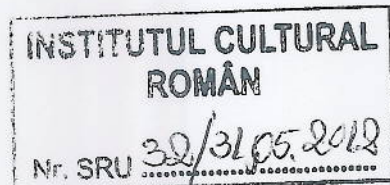 INSTITUTUL CULTURAL
ROMÂN
Nr. SRU 32/31.05.2012